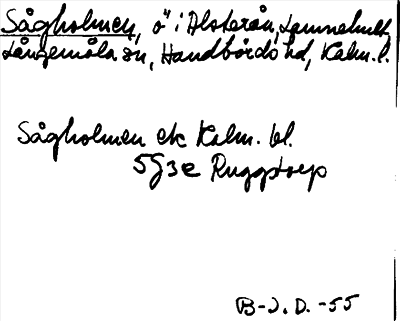 Sågholmen, ö i Alsterån, Lemnehult,
Långemåla sn, Handbörds hd, Kalm. l.
Sågholmen ek Kalm. bl.
5G3e Ruggstorp
B-J. D. -55